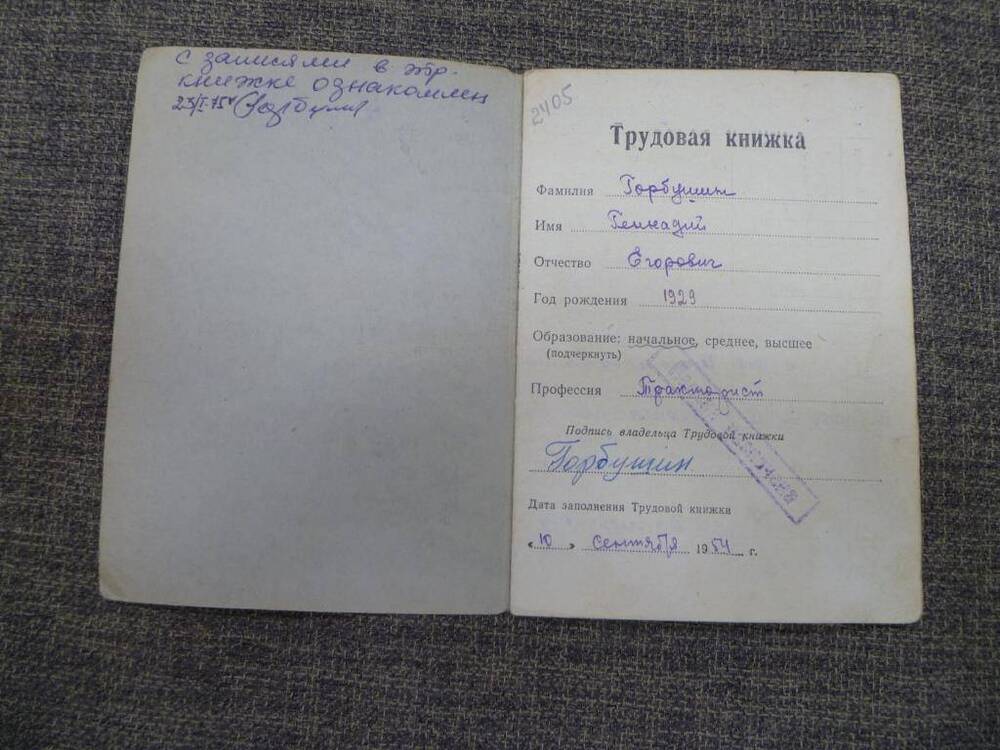 с записями в тр.
книжке ознакомлен
23/I-75г Горбушин
2405
Трудовая книжка
Фамилия Горбушин
Имя Геннадий
Отчество Егорович
Год рождения 1929
Образование: начальное, среднее, высшее
(подчеркнуть)
Профессия Тракторист
Подпись владельца Трудовой книжки
Горбушин
Дата заполнения Трудовой книжки
«10» сентября 1954 г.